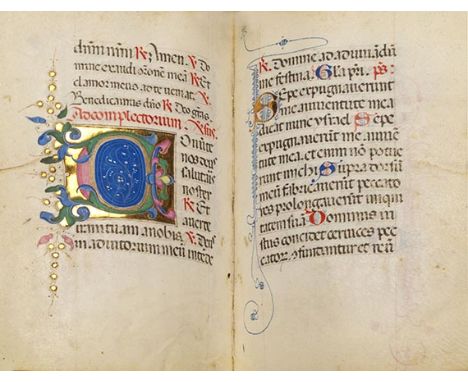 dium nrm̄ R̷ Amen. V̷ Do
mine exaudi orōnem meā R̷ Et
clamor meus ad te veniat. V̷.
Benedicamus dn̄o R̷ Deo gr̄as.
Ad complectorium. V̷sus.
Onuer
te nos deus
salutaris
noster
R̷ Et
auerte
iram tuam a nobis. V̷ Deus
in adiutorium meū intende
R̷ Domine ad adiuuādū
me festina. Gl̄a pr̄i. ps̄.
Sepe expugnauerunt
me a iuuentute mea
dicat nunc ysrael Sepe
expugnauerūt me a iuuen
tute mea. et enim nō potue
runt michi Supra dorsū
meū fabricauerūt peccato
res prolongauerūt iniqui
tatem suā Dominus iu
stus concidet ceruices pec
catorū 9fundantur et